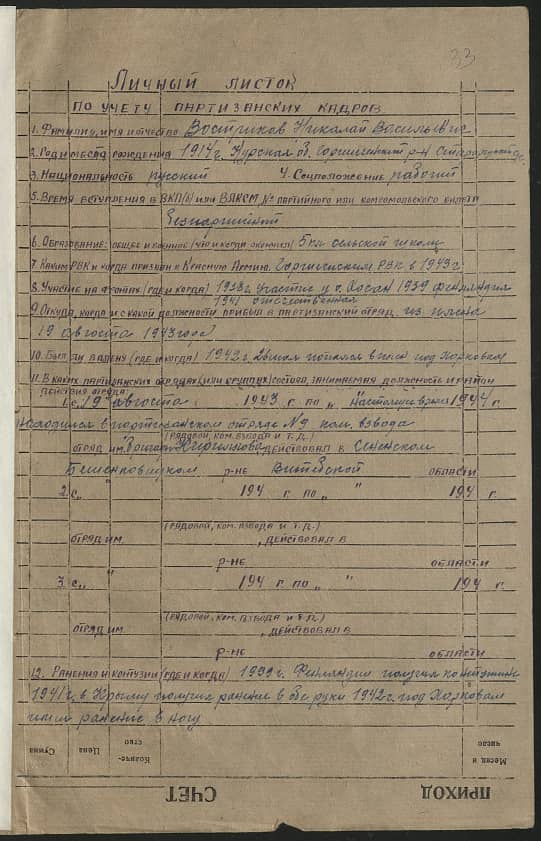 33
Личный листок
по учету партизанских кадров
1. Фамилия, имя и отчество Востриков Николай Васильевич
2. Год и место рождения 1914 г. Курская об. р-н
3. Национальность русский 4. Соцположение рабочий
5. Время вступления в ВКП(б) или ВЛКСМ, № партийного или комсомольского билета
Безпартийный
6. Образование: общее и военное (что и когда окончил) 5 кл сельской школы
7. Каким РВК и когда призван в Красную Армию. РВК в 1943 г
8. Участие на фронтах (где и когда) 1938 г. участие у о. Хасан 1939 Финляндия
1941 отечественная
9. Откуда, когда и с какой должности прибыл в партизанский отряд из плена
19 августа 1943 года
10. Был ли в плену (где и когда) 1942 г. попался в плен под Харковом
11. В каких партизанских отрядах (или группах) состоял, занимаемая должность и район
действия отряда
1. с „19" августа 1943 г. по „ " настоящее время 1944 г.
находился в партизанском отряде №9 ком. взвода
(рядовой, ком. взвода и т. д.)
отряд им. действовал в Сененском
Бешенковицком р-не Витебской области
2. с „ " 194 г. по „ " 194 г.
(рядовой, ком. взвода и т. д.)
отряд им. , действовал в
р-не области
3. с „ " 194 г. по „ " 194 г.
(рядовой, ком. взвода и т. д.)
отряд им. , действовал в
р-не области
12. Ранения и контузии (где и когда) 1939 г. Финляндии получил контузию
1941 г. в Крыму получил ранение в обе руки 1942 г. под Харковам
ранение в ногу
Сумма Цена Количе-
ство Месяц и
число
СЧЕТ ПРИХОД